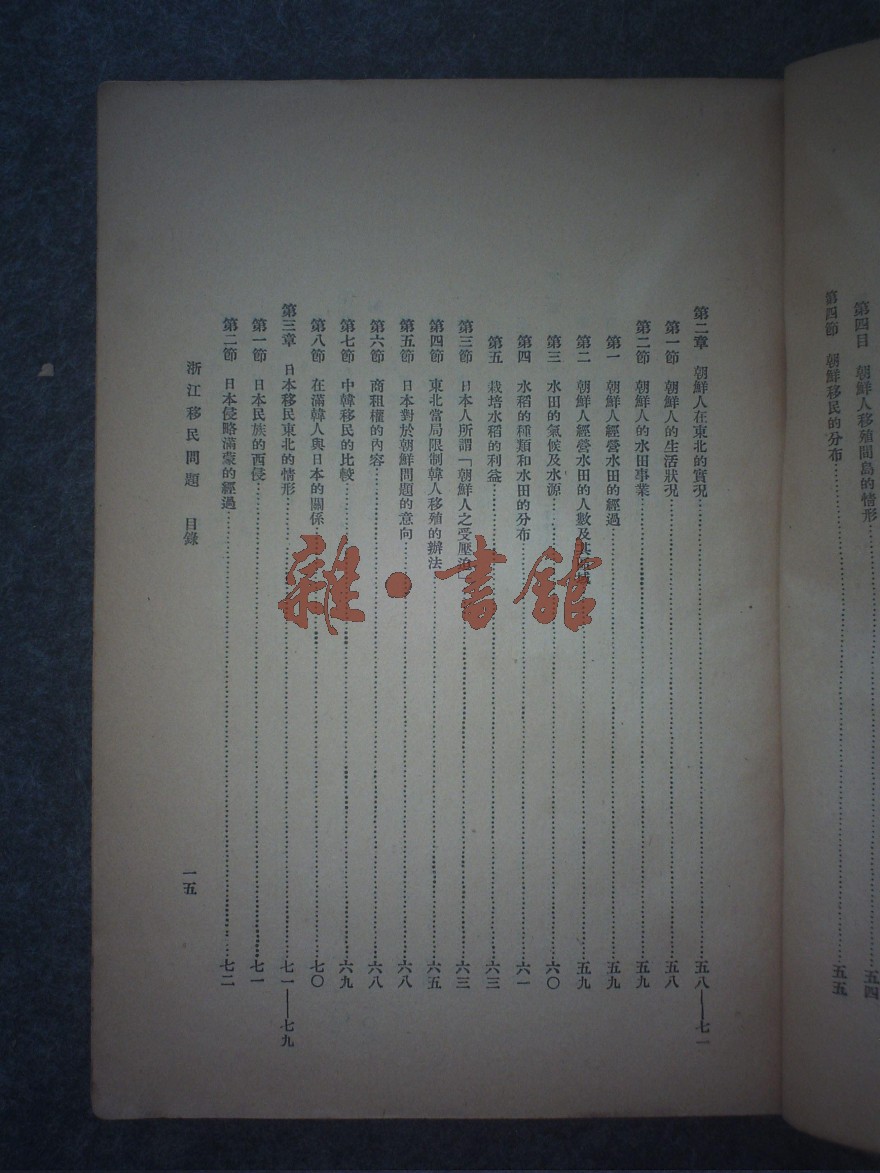 第四目　朝鮮人移殖間島的情形……五四
第四節　朝鮮移民的分布……五五
第二章　朝鮮人在東北的實況……五八——七一
第一節　朝鮮人的生活狀况……五八
第二節　朝鮮人的水田事業……五九
第一　朝鮮人經營水田的經過……五九
第二　朝鮮人經營水田的人數及其……五九
第三　水田的氣候及水源……六〇
第四　水稻的種類和水田的分布……六一
第五　栽培水稻的利益……六三
第三節　日本人所謂「朝鮮人之受壓迫」……六三
第四節　東北當局限制韓人移殖的辦法……六五
第五節　日本對於朝鮮問題的意向……六八
第六節　商租權的內容……六八
第七節　中韓移民的比較……六九
第八節　在滿韓人與日本的關係……七〇
第三章　日本移民東北的情形……七一——七九
第一節　日本民族的西侵……七一
第二節　日本侵略滿蒙的經過……七二
浙江移民問題　目錄
一五
雜·書館